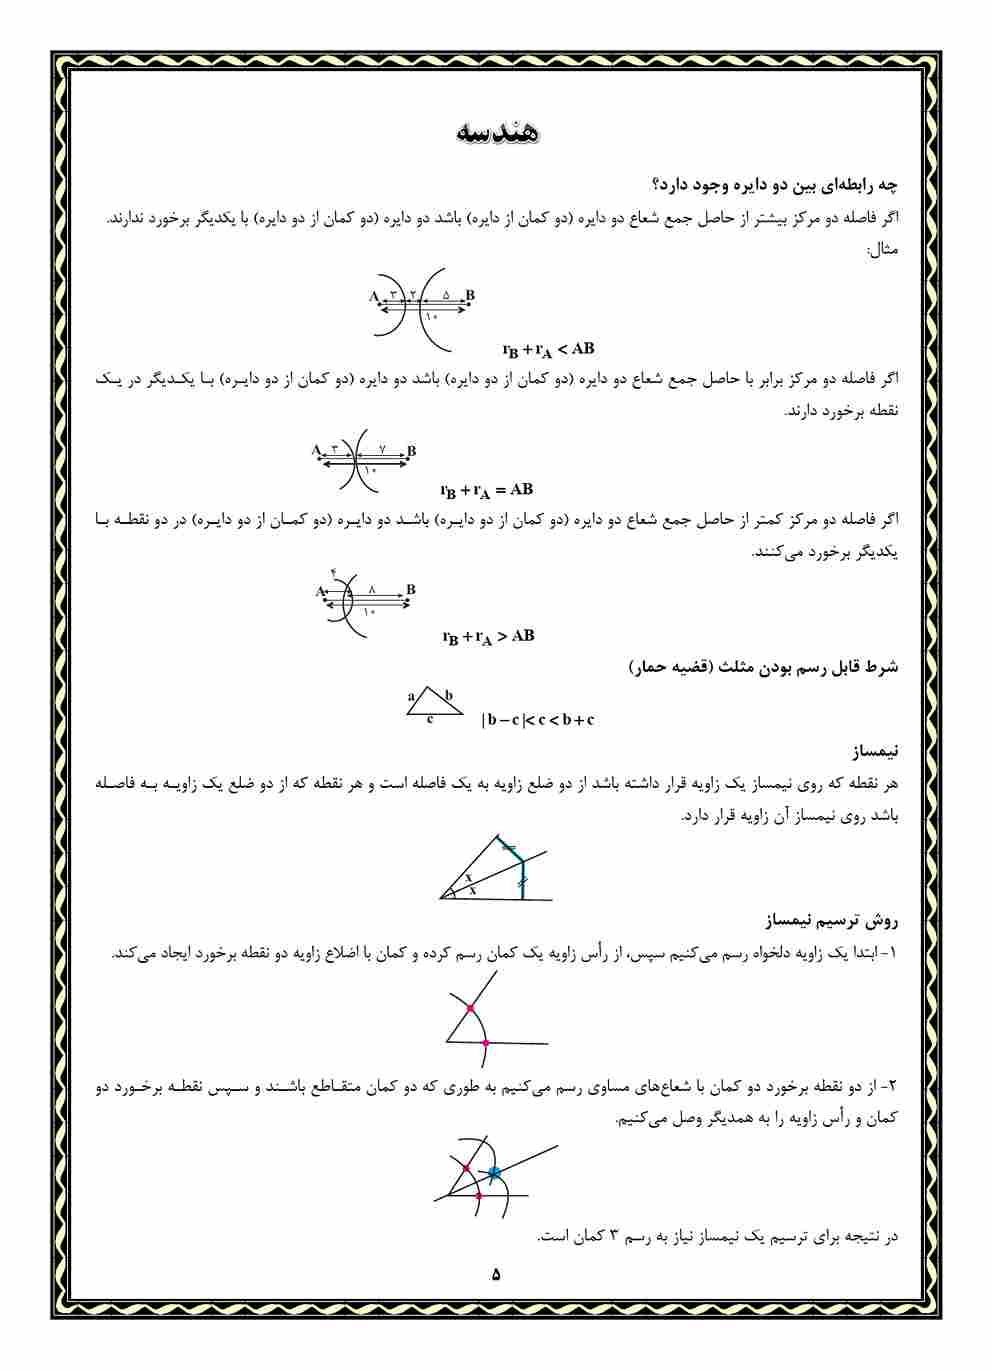 هندسه
چه رابطه‌ای بین دو دایره وجود دارد؟
اگر فاصله دو مرکز بیشتر از حاصل جمع شعاع دو دایره (دو کمان از دایره) باشد دو دایره (دو کمان از دو دایره) با یکدیگر برخورد ندارند.
مثال:
A ۳ ۲ ۵ B
۱۰
r_B + r_A < AB
اگر فاصله دو مرکز برابر با حاصل جمع شعاع دو دایره (دو کمان از دو دایره) باشد دو دایره (دو کمان از دو دایره) با یکدیگر در یک
نقطه برخورد دارند.
A ۳ ۷ B
۱۰
r_B + r_A = AB
اگر فاصله دو مرکز کمتر از حاصل جمع شعاع دو دایره (دو کمان از دو دایره) باشد دو دایره (دو کمان از دو دایره) در دو نقطه با
یکدیگر برخورد می‌کنند.
۴
A ۸ B
۱۰
r_B + r_A > AB
شرط قابل رسم بودن مثلث (قضیه حمار)
a b
c
|b − c| < c < b + c
نیمساز
هر نقطه که روی نیمساز یک زاویه قرار داشته باشد از دو ضلع زاویه به یک فاصله است و هر نقطه که از دو ضلع یک زاویه به فاصله
باشد روی نیمساز آن زاویه قرار دارد.
x
x
روش ترسیم نیمساز
۱- ابتدا یک زاویه دلخواه رسم می‌کنیم سپس، از رأس زاویه یک کمان رسم کرده و کمان با اضلاع زاویه دو نقطه برخورد ایجاد می‌کند.
۲- از دو نقطه برخورد دو کمان با شعاع‌های مساوی رسم می‌کنیم به طوری که دو کمان متقاطع باشند و سپس نقطه برخورد دو
کمان و رأس زاویه را به همدیگر وصل می‌کنیم.
در نتیجه برای ترسیم یک نیمساز نیاز به رسم ۳ کمان است.
۵